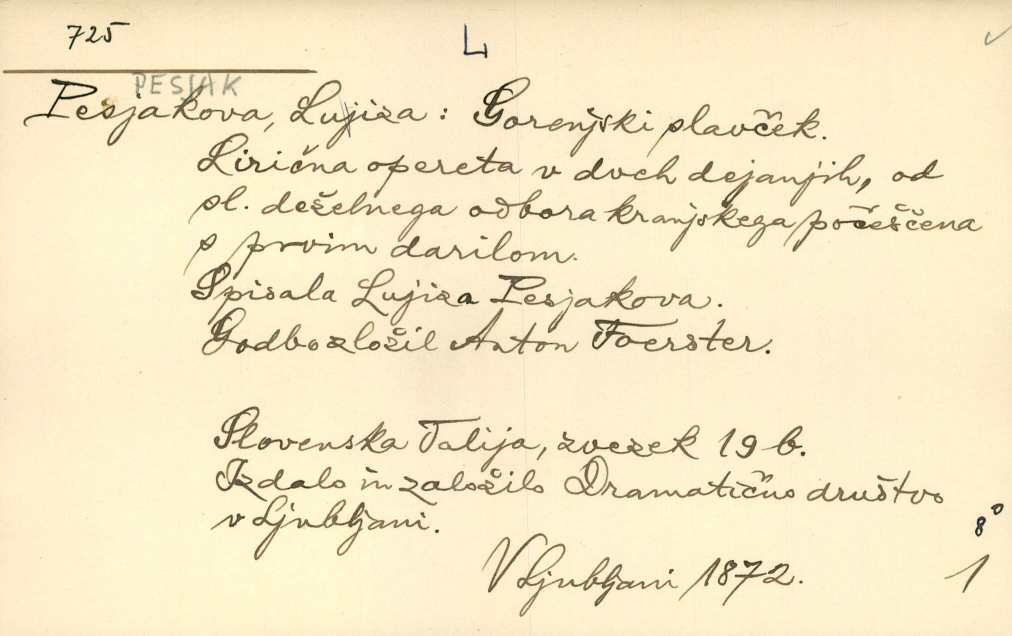 725
L
PESJAK
Pesjakova, Lujiza: Gorenjski slavček.
Lirična opereta v dveh dejanjih, od
sl. deželnega odbora kranjskega počeščena
s prvim darilom.
Spisala Lujiza Pesjakova.
Godbo zložil Anton Foerster.
Slovenska Talija, zvezek 19 b.
Izdalo in založilo Dramatično društvo
v Ljubljani.
8°
V Ljubljani 1872.
1